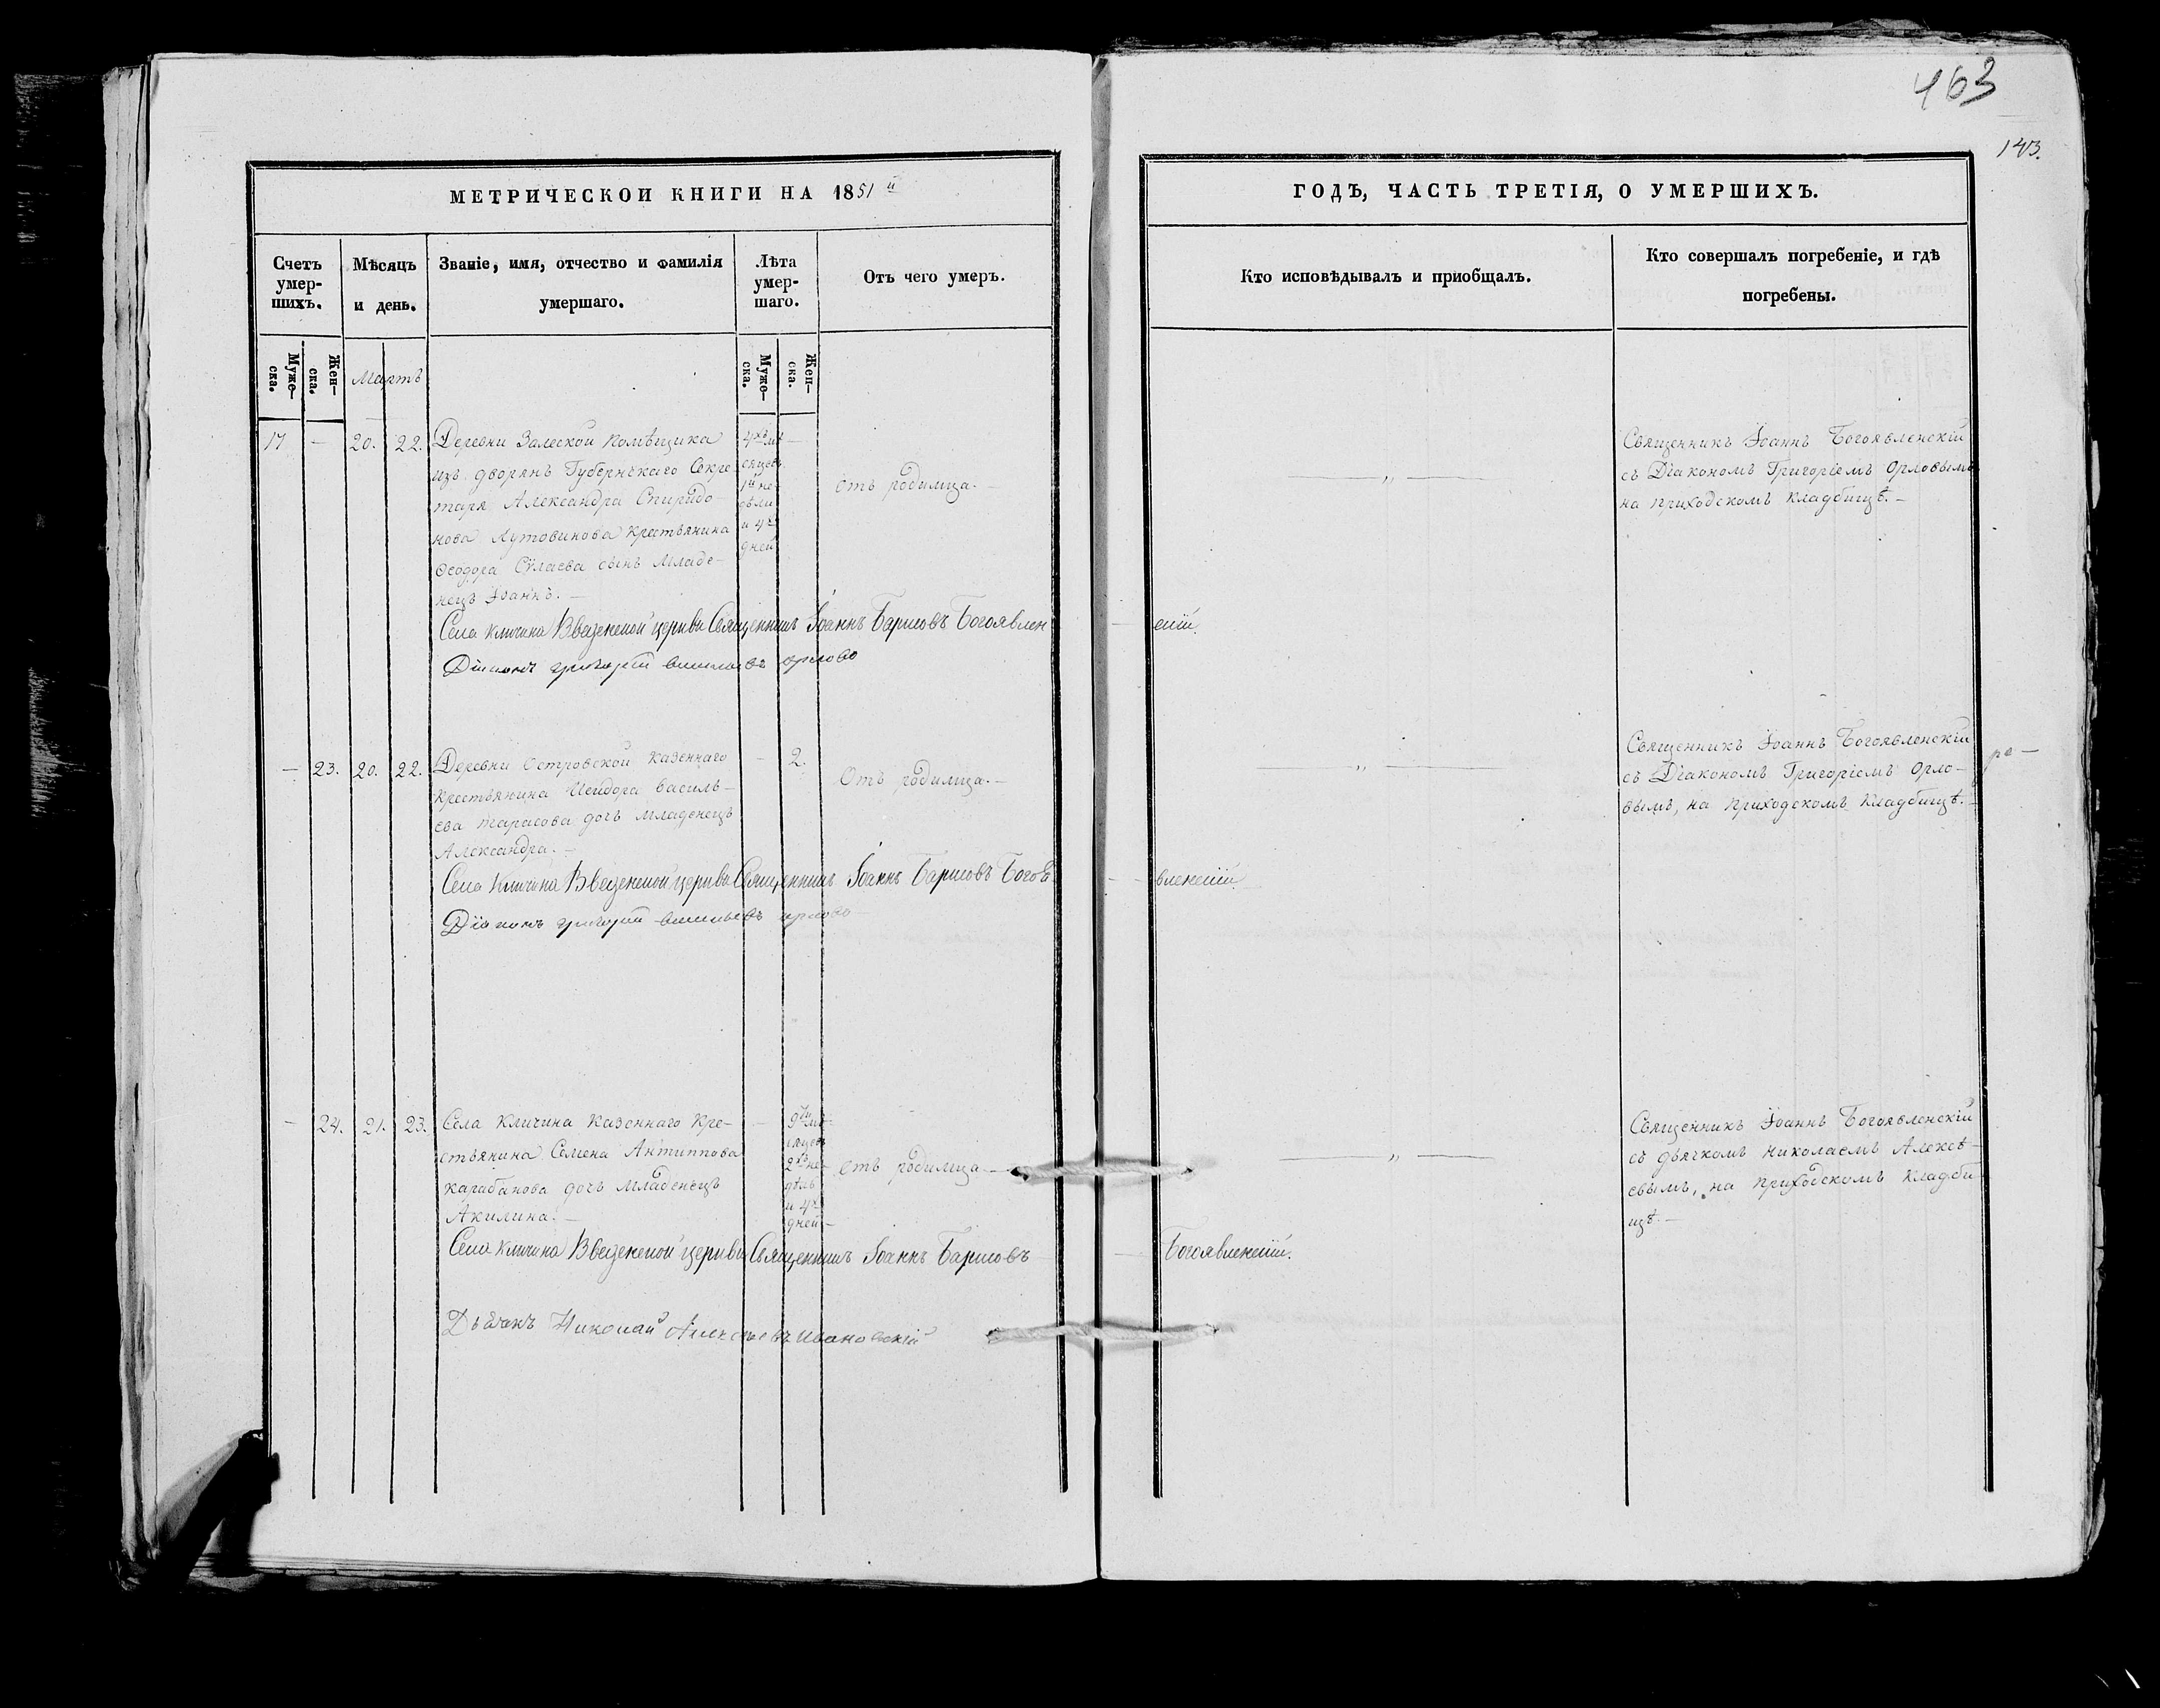 463
143.
МЕТРИЧЕСКОЙ КНИГИ НА 1851й
ГОДЪ, ЧАСТЬ ТРЕТІЯ, О УМЕРШИХЪ.
Счетъ умер-
шихъ.
Мѣсяцъ
и день.
Званіе, имя, отчество и фамилія
умершаго.
Лѣта
умер-
шаго.
Отъ чего умеръ.
Кто исповѣдывалъ и приобщалъ.
Кто совершалъ погребеніе, и гдѣ
погребены.
Муже-
ска.
Жен-
ска.
Мартъ
Муже-
ска.
Жен-
ска.
17 — 20. 22.
Деревни Залеской помѣщика
изъ дворянъ Губернскаго Секре-
таря Александра Спиридо-
нова Лутовинова крестьянина
Ѳеодора Силаева сынъ младе-
нецъ Іоаннъ. —
4хъ мѣ-
сяцевъ
1й не-
дѣли
и 4хъ
дней
—
Отъ родимца. —
— „ —
Священникъ Іоаннъ Богоявленскій
съ Діакономъ Григоріемъ Орловымъ
на приходскомъ кладбищѣ. —
Села Кличина Введенской церкви Священникъ Іоаннъ Барисовъ Богоявлен
скій.
Діаконъ григорій васильевъ орловъ
— 23. 20. 22.
Деревни Островской казеннаго
крестьянина Исидора Василь-
ева Тарасова дочь младенецъ
Александра. —
— 2.
Отъ родимца. —
— „ —
Священникъ Іоаннъ Богоявленскій
съ Діакономъ Григоріемъ Орло-
вымъ, на приходскомъ кладбищѣ. —
Села Кличина Введенской церкви Священникъ Іоаннъ Барисовъ Богоя
вленскій.
Діаконъ григорій васильевъ орловъ
— 24. 21. 23.
Села Кличина казеннаго кре-
стьянина Семена Антиппова
Карабанова дочь младенецъ
Акилина. —
—
9ти мѣ-
сяцевъ
2хъ не-
дѣль
и 4хъ
дней —
Отъ родимца. —
— „ —
Священникъ Іоаннъ Богоявленскій
съ дьячкомъ Николаемъ Алексѣ-
евымъ, на приходскомъ кладби
щѣ. —
Села Кличина Введенской церкви Священникъ Іоаннъ Барисовъ
Богоявленскій.
Дьячекъ Николай Алексѣевъ Ивановскій